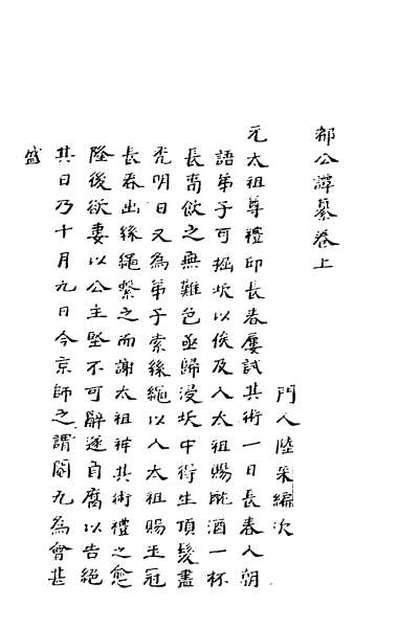 都公譚纂卷上
門人陸采編次
元太祖尊禮邱長春屢試其術一日長春入朝
語弟子可掘坎以俟及入太祖賜酖酒一杯
長春飲之無難色亟歸浸坎中得生頂髮盡
禿明日又為弟子索絛繩以入太祖賜玉冠
長春出絛繩繫之而謝太祖神其術禮之愈
隆後欲妻以公主堅不可辭遂自腐以告絕
其日乃十月九日今京師之謂閹九為會甚
盛